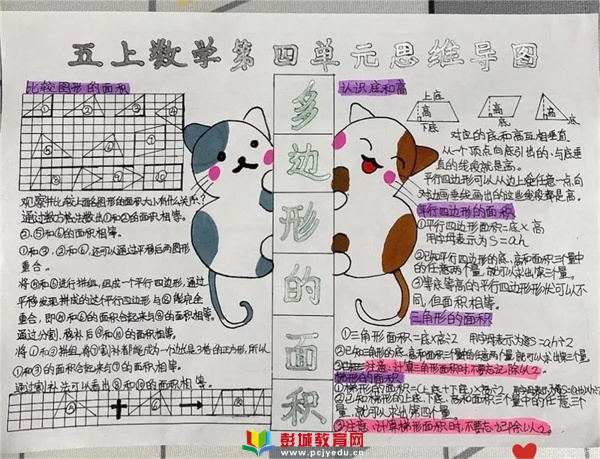 五上数学第四单元思维导图
多边形的面积
比较图形的面积
观察并比较上面各图形的面积大小有什么关系?
通过数方格法数出①和③的面积相等。
②、⑤和⑥的面积相等。
①和③,②和⑥,还可以通过平移后两图形
重合。
平移发现拼成的这个平行四边形与⑧能完全
重合,即⑤和⑥的面积合起来与⑧的面积相等。
通过分割、移补后
的面积相等。
①和③的面积合起来与⑦的面积相等。
通过割补法可以看出⑧和⑩的面积相等。
认识底和高
上底
高
下底
高
底
高
底
对应的底和高互相垂直
从一个顶点向底引出的,与底垂
直的线段就是高。
平行四边形可以从边上任意一点,向
对边画垂线画出的这些线段都是高。
平行四边形的面积
①平行四边形面积=底×高
用字母表示为S=ah
②已知平行四边形的底、高和面积三个量中
的任意两个量,就可以求出第三个量。
③等底等高的平行四边形形状可以不
同,但面积相等。
三角形的面积
①三角形面积=底×高÷2 用字母表示为S=ah÷2
②已知三角形的底、高和面积三个量的任意两个量,就可以求出第三量
③注意:计算三角形面积时,不要忘记除以2。
梯形的面积
①梯形的面积=(上底+下底)×高÷2
②已知梯形的上底、下底、高和面积三个量中的任意三个
量,就可以求出第四个量。
③注意:计算梯形面积时,不要忘记除以2。
彭城教育网
www.pcjyedu.cn